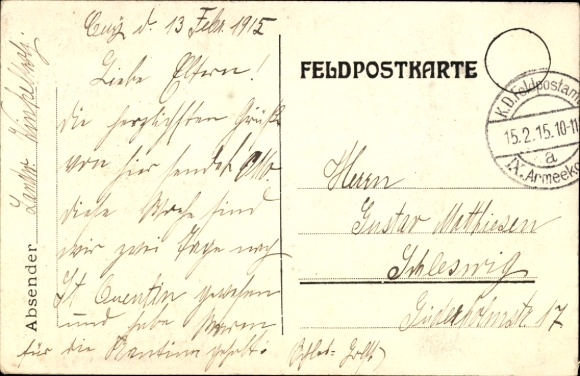 Cuy d. 13 Febr. 1915
Liebe Eltern!
die herzlichsten Grüße
von hier sendet Otto
diese Woche sind
wir zwei Tage nach
St Quentin gewesen
und habe Waren
für die Kantine geholt.
Absender
FELDPOSTKARTE
K.D.Feldpostam
15.2.15.10-11
a
IX. Armeeko
Herrn
Gustav Mathiesen
Schleswig
17